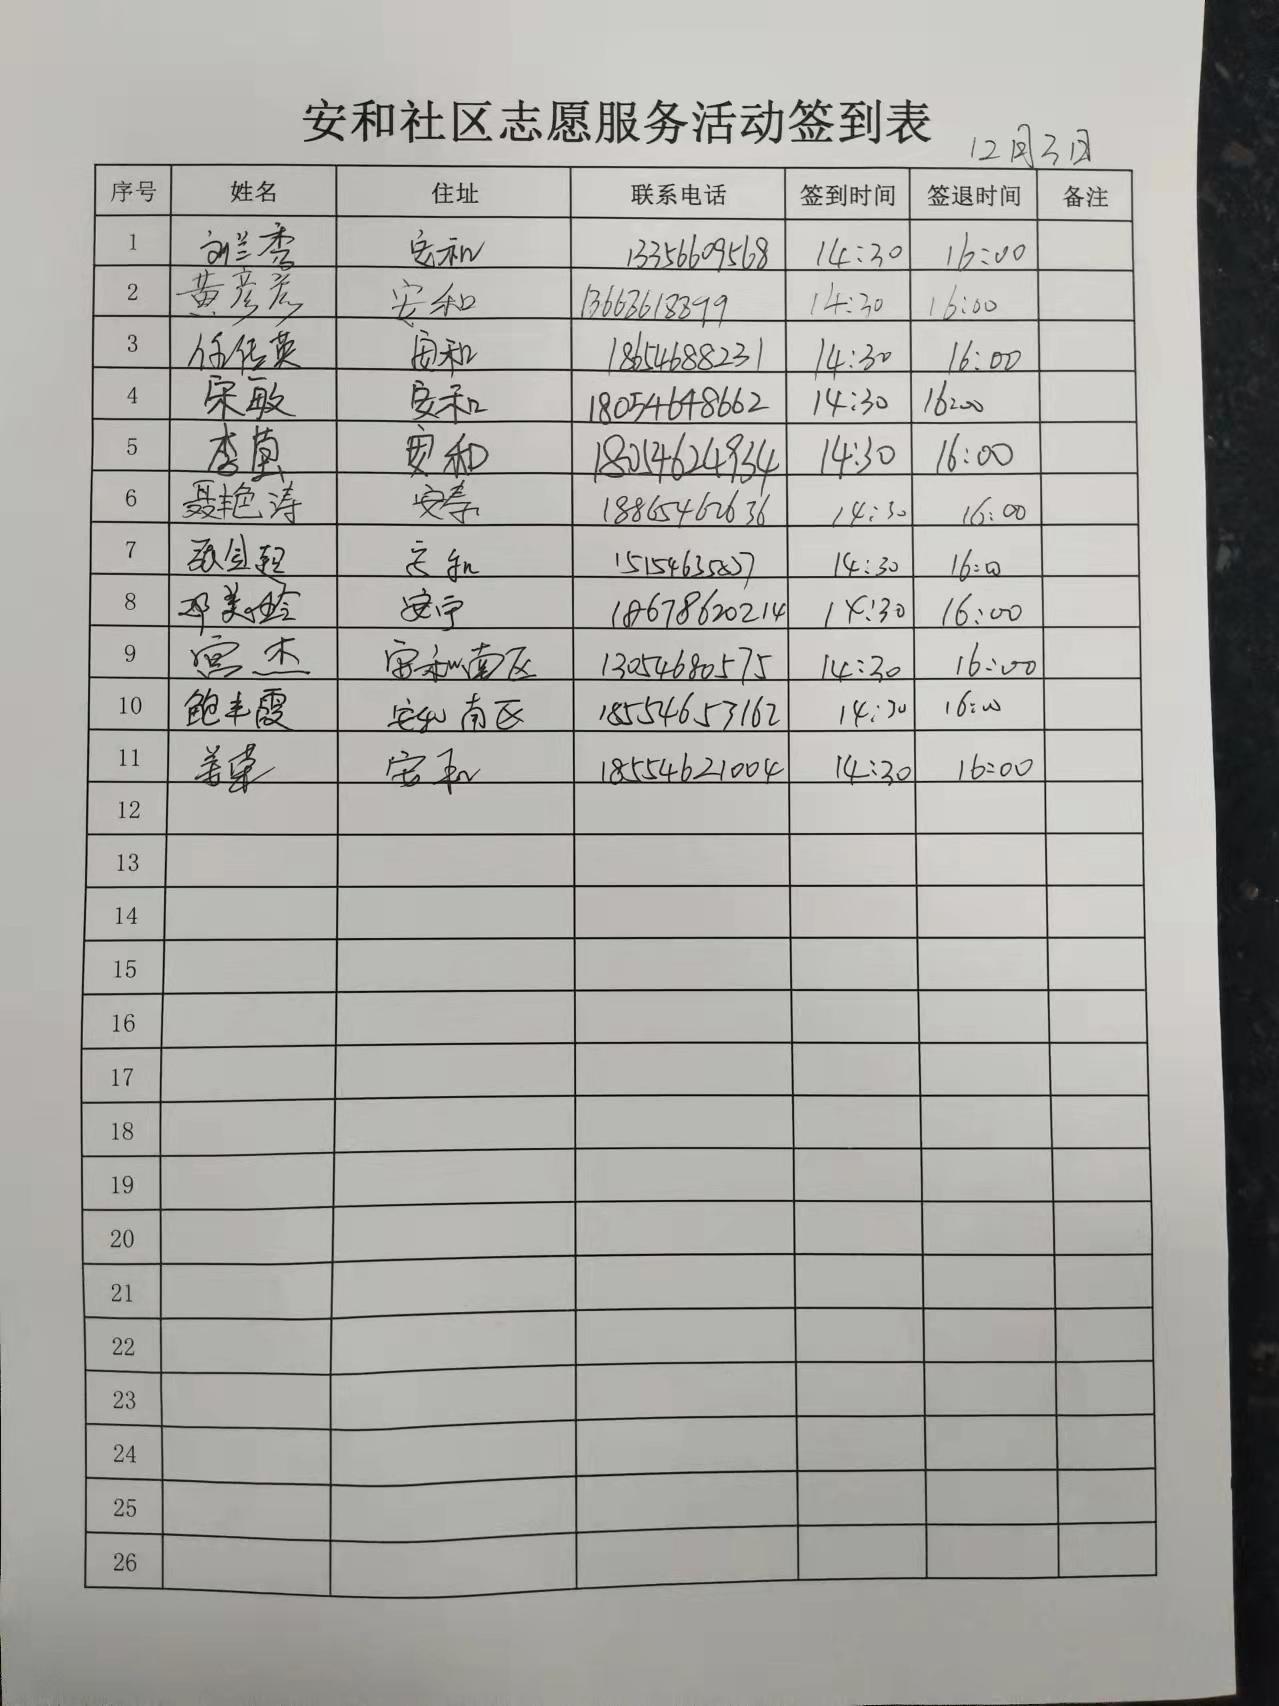 安和社区志愿服务活动签到表
12月3日
序号 姓名 住址 联系电话 签到时间 签退时间 备注
1 刘兰秀 安和 13356609568 14:30 16:00
2 黄彦彦 安和 13663618399 14:30 16:00
3 任传英 安和 18654688231 14:30 16:00
4 宋敏 安和 18054648662 14:30 16:00
5 李 安和 18054624934 14:30 16:00
6 聂艳涛 安泰 18865462636 14:30 16:00
7 安和 15154635827 14:30 16:00
8 邓美玲 安宁 18678620214 14:30 16:00
9 宫杰 安和南区 13054680575 14:30 16:00
10 鲍丰霞 安和南区 18554653162 14:30 16:00
11 姜荣 安和 18554621004 14:30 16:00
12
13
14
15
16
17
18
19
20
21
22
23
24
25
26